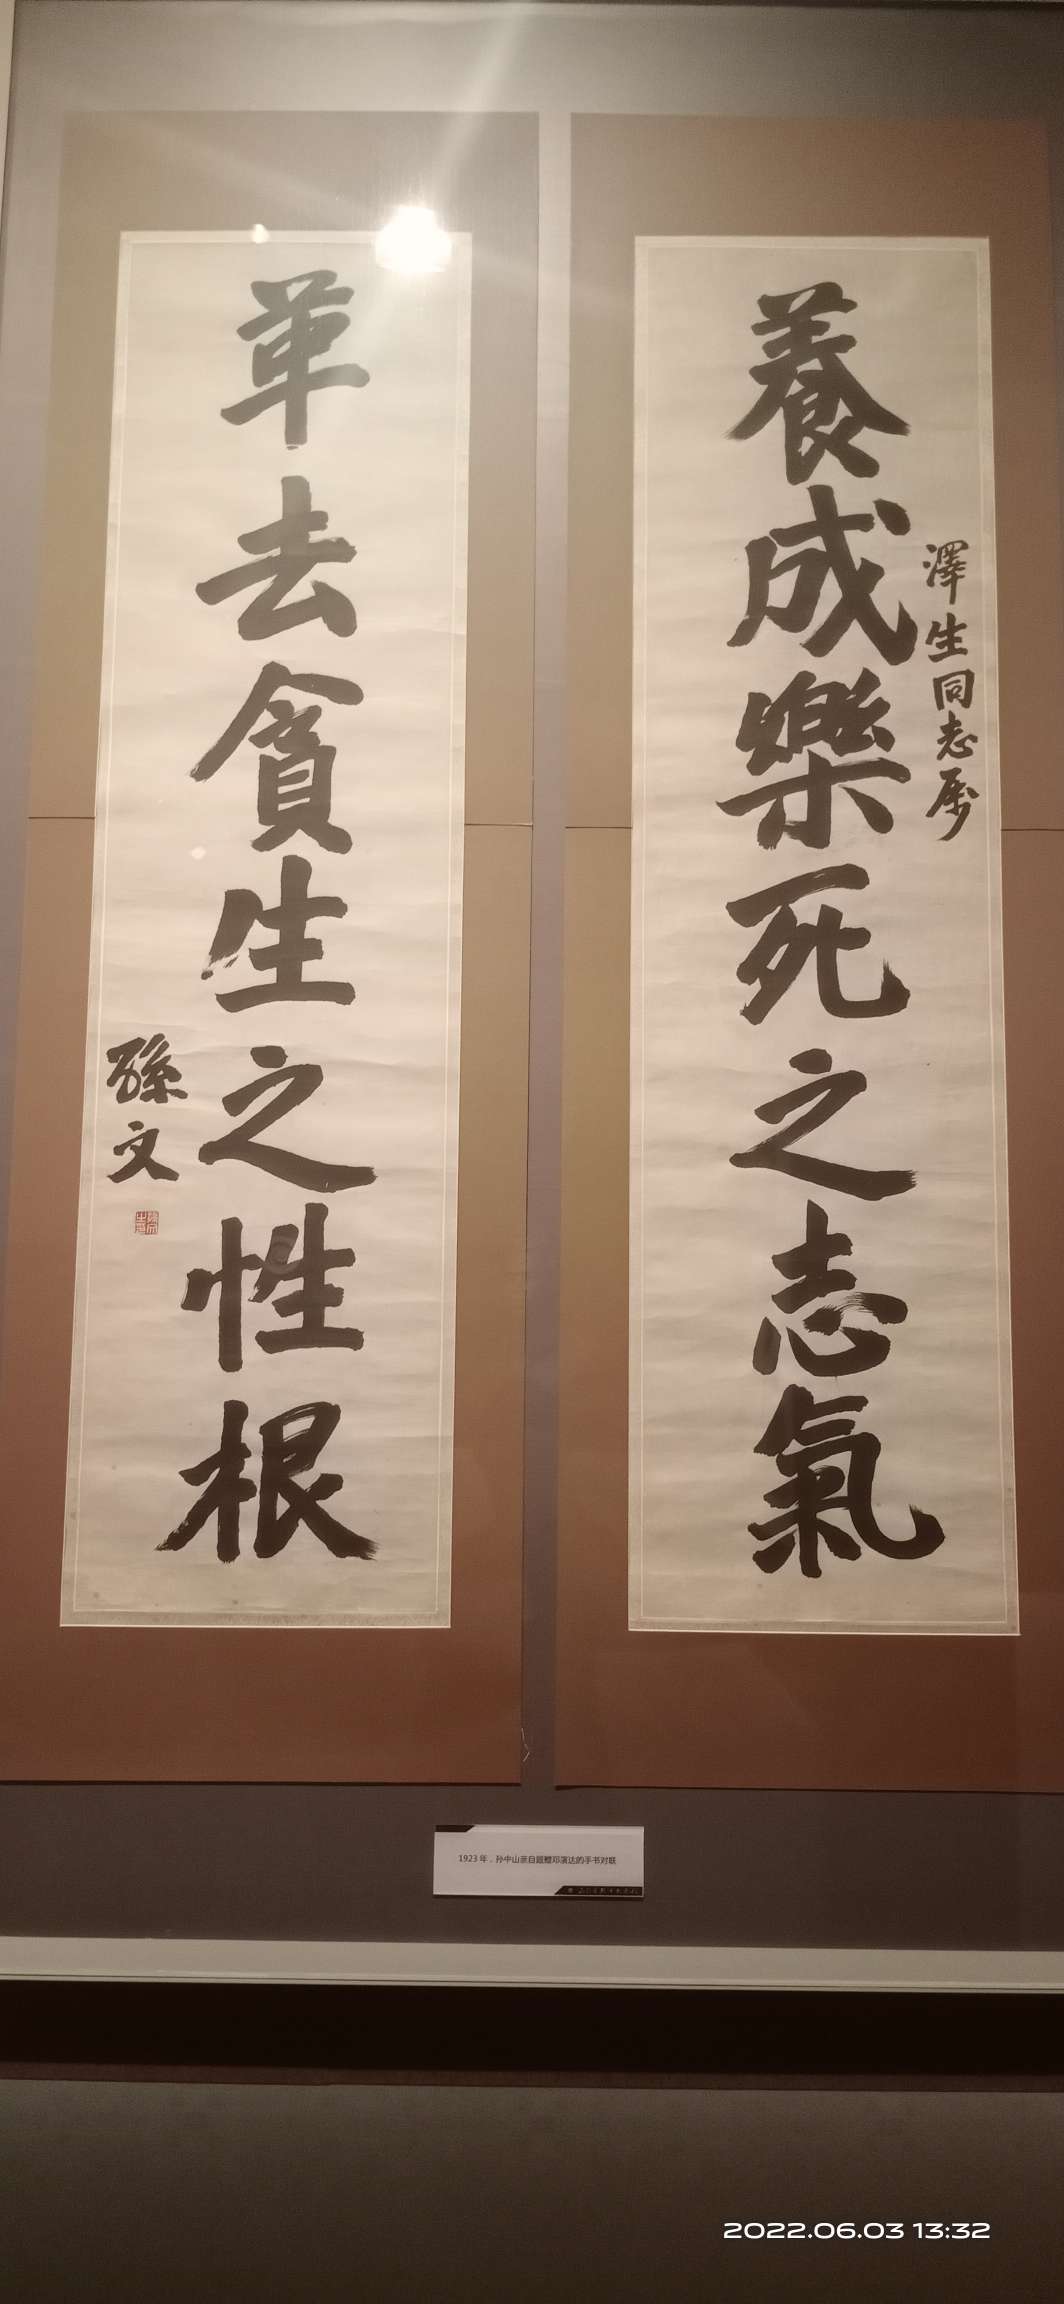 養成樂死之志氣
澤生同志属
革去貪生之性根
孫文
1923 年，孙中山亲自题赠邓演达的手书对联
2022.06.03 13:32